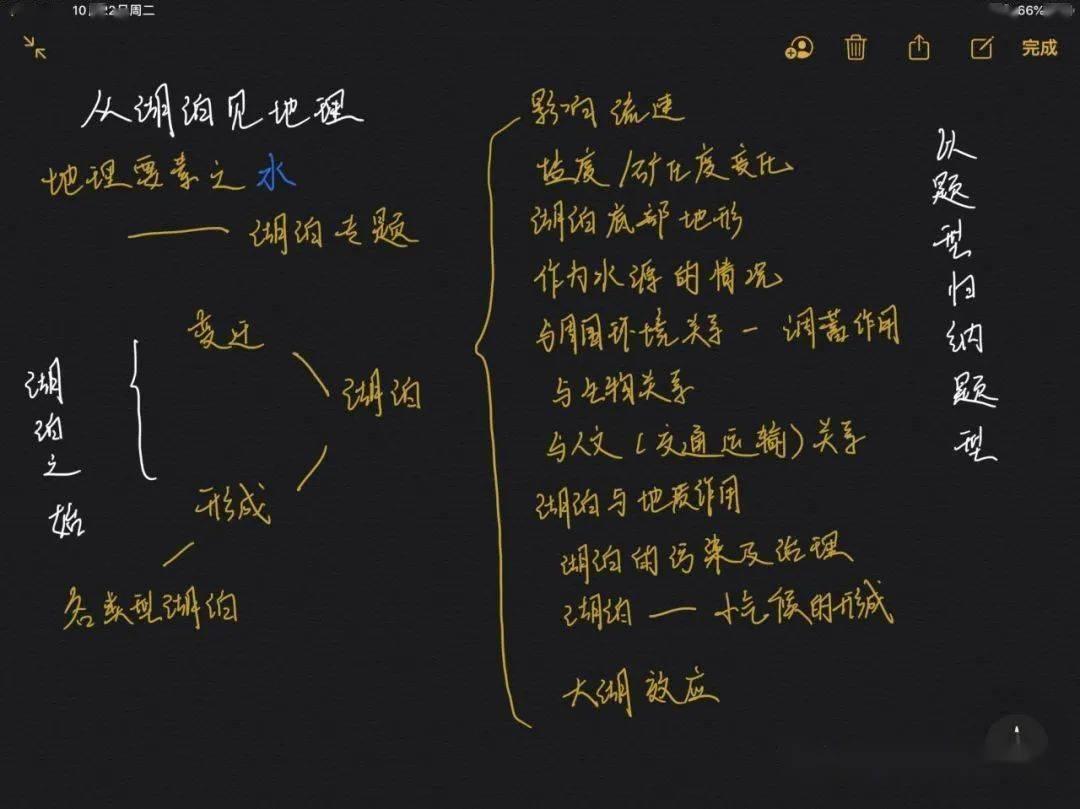 周二
66%
完成
从湖泊见地理
地理要素之水
——湖泊专题
湖泊之始
变迁
形成
各类型湖泊
湖泊
影响流速
盐度/矿化度变化
湖泊底部地形
作为水源的情况
与周围环境关系—调蓄作用
与生物关系
与人文(交通运输)关系
湖泊与地质作用
湖泊的污染及治理
湖泊——小气候的形成
大湖效应
以题型归纳题型